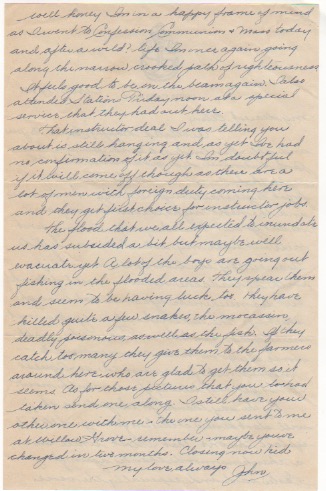 well honey I'm in a happy frame of mind
as I went to Confession Communion & Mass today
and after a wild? life I'm once again going
along the narrow, crooked path of righteousness.
It feels good to be on the beam again. I also
attended Stations Friday noon at a special
service that they had out here.
That instructor deal I was telling you
about is still hanging and, as yet I've had
no confirmation of it as yet. I'm doubtful
if it will come off though as there are a
lot of men with foreign duty coming here
and they get first choice for instructor jobs
The flood that we all expected to inundate
us has subsided a bit but maybe we'll
evacuate yet. A lot of the boys are going out
fishing in the flooded areas. They spear them
and seem to be having luck, too. They have
killed quite a few snakes, the mocassin,
deadly poisonous as well as the fish. If they
catch too many they give them to the farmers
around here who are glad to get them so it
seems. As for those pictures that you looked
taken send one along. I still have your
other one with me - the one you sent to me
at Willow Grove - remember - maybe you've
changed in two months. Closing now kid
my love always John